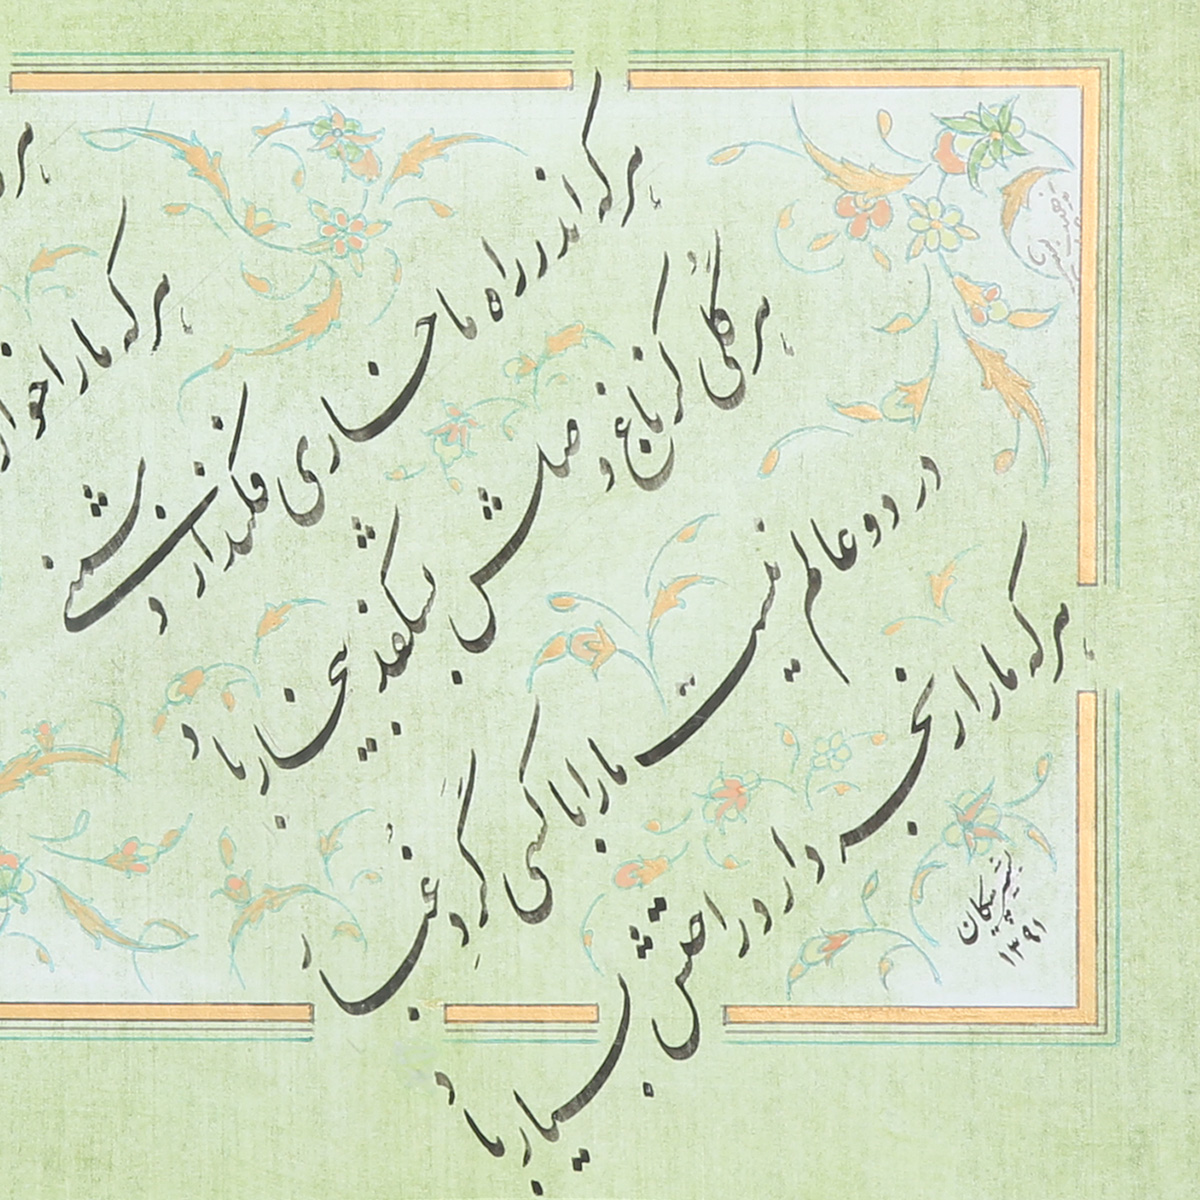 هر که اندر راه ما خاری فکند از دشمنی
هر گلی کز باغ وصلش بشکفد بیخار باد
در دو عالم نیست ما را با کسی گرد و غبار
هر که ما را رنجه دارد راحتش بسیار باد
۱۳۹۱
هر که ما را خوار